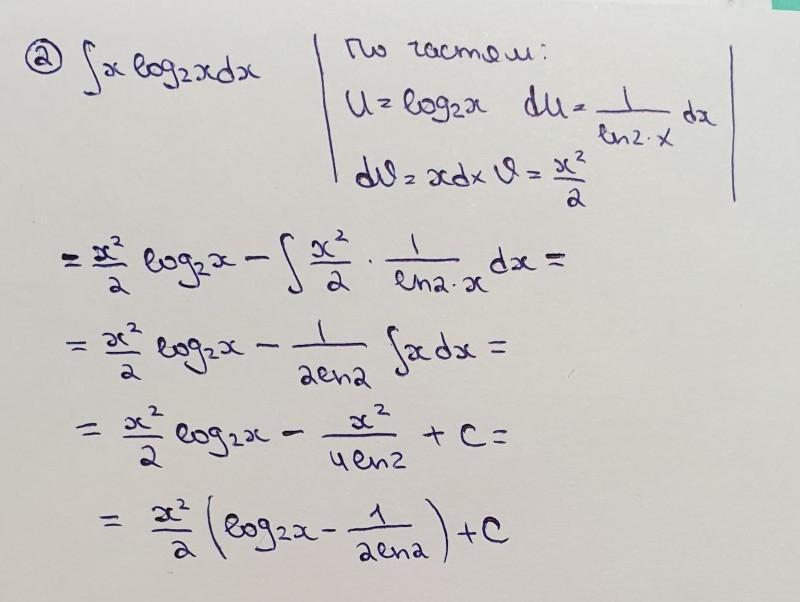 ② ∫x log₂x dx | По частям: |
u = log₂x du = 1/(ln2·x) dx
dv = xdx v = x²/2
= x²/2 log₂x − ∫ x²/2 · 1/(ln2·x) dx =
= x²/2 log₂x − 1/(2ln2) ∫x dx =
= x²/2 log₂x − x²/(4ln2) + C =
= x²/2 (log₂x − 1/(2ln2)) + C